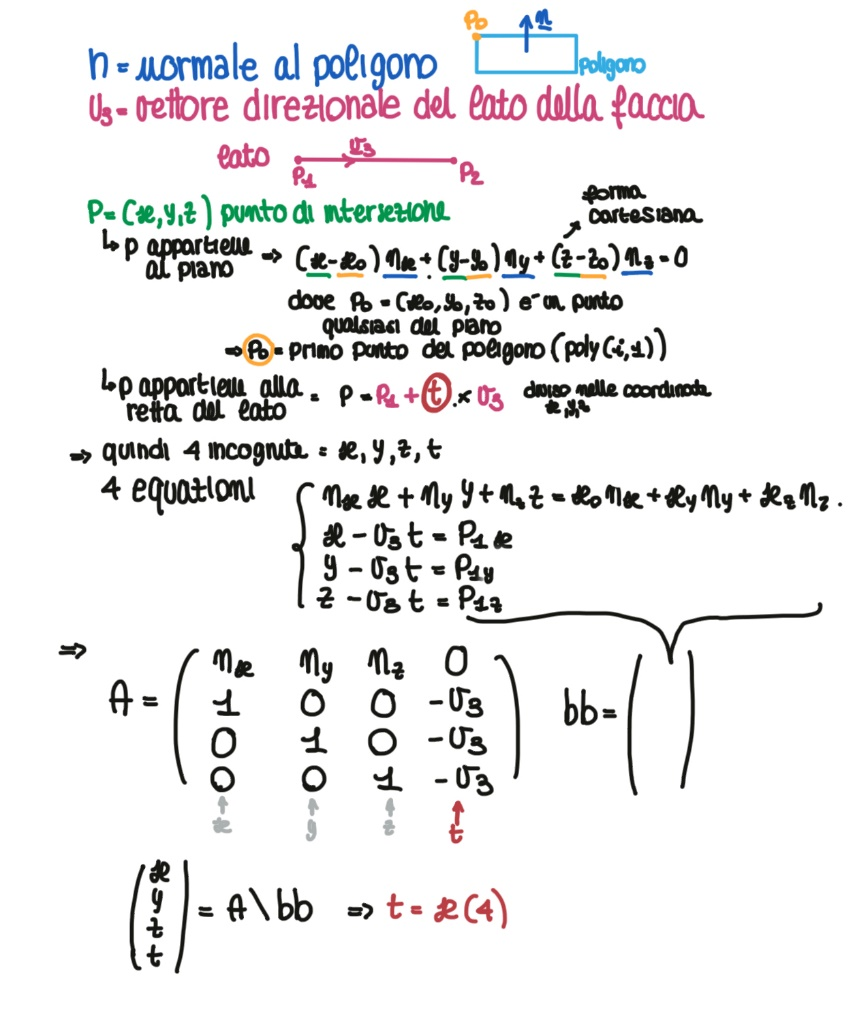 P₀ n
n = normale al poligono
poligono
v₃ = vettore direzionale del lato della faccia
lato v₃
P₁ P₂
P = (x, y, z) punto di intersezione
forma
cartesiana
↳ p appartiene
al piano ⇒ (x - x₀) nₓ + (y - y₀) n_y + (z - z₀) n_z = 0
dove P₀ = (x₀, y₀, z₀) e' un punto
qualsiasi del piano
⇒ P₀ = primo punto del poligono (poly(i,1))
↳ p appartiene alla
retta del lato = P = P₁ + t .× v₃ diviso nelle coordinate
x,y,z
⇒ quindi 4 incognite = x, y, z, t
4 equazioni
nₓ x + n_y y + n_z z = x₀ nₓ + x_y n_y + x_z n_z .
x - v₃ t = P₁ₓ
y - v₃ t = P₁y
z - v₃ t = P₁z
⇒
nₓ n_y n_z 0
A = 1 0 0 -v₃ bb = ( )
0 1 0 -v₃
0 0 1 -v₃
x y z t
x
y
z
t
= A \ bb ⇒ t = x(4)